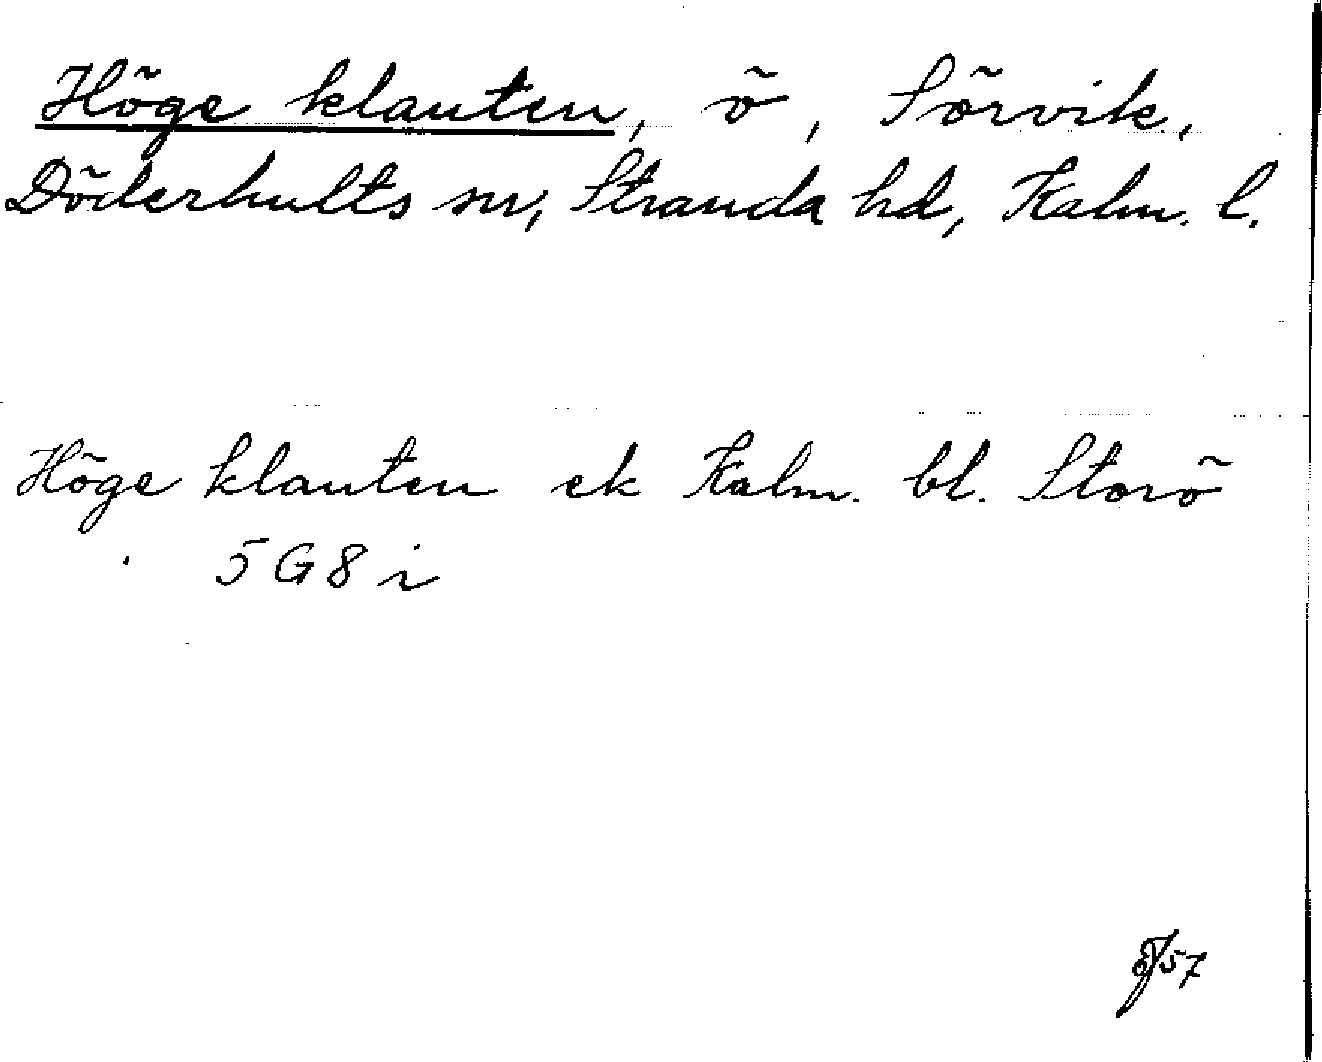 Höge klauten, ö, Sörvik,
Döderhults sn, Stranda hd, Kalm. l.
Höge klauten ek Kalm. bl. Storö
5 G 8 i
57